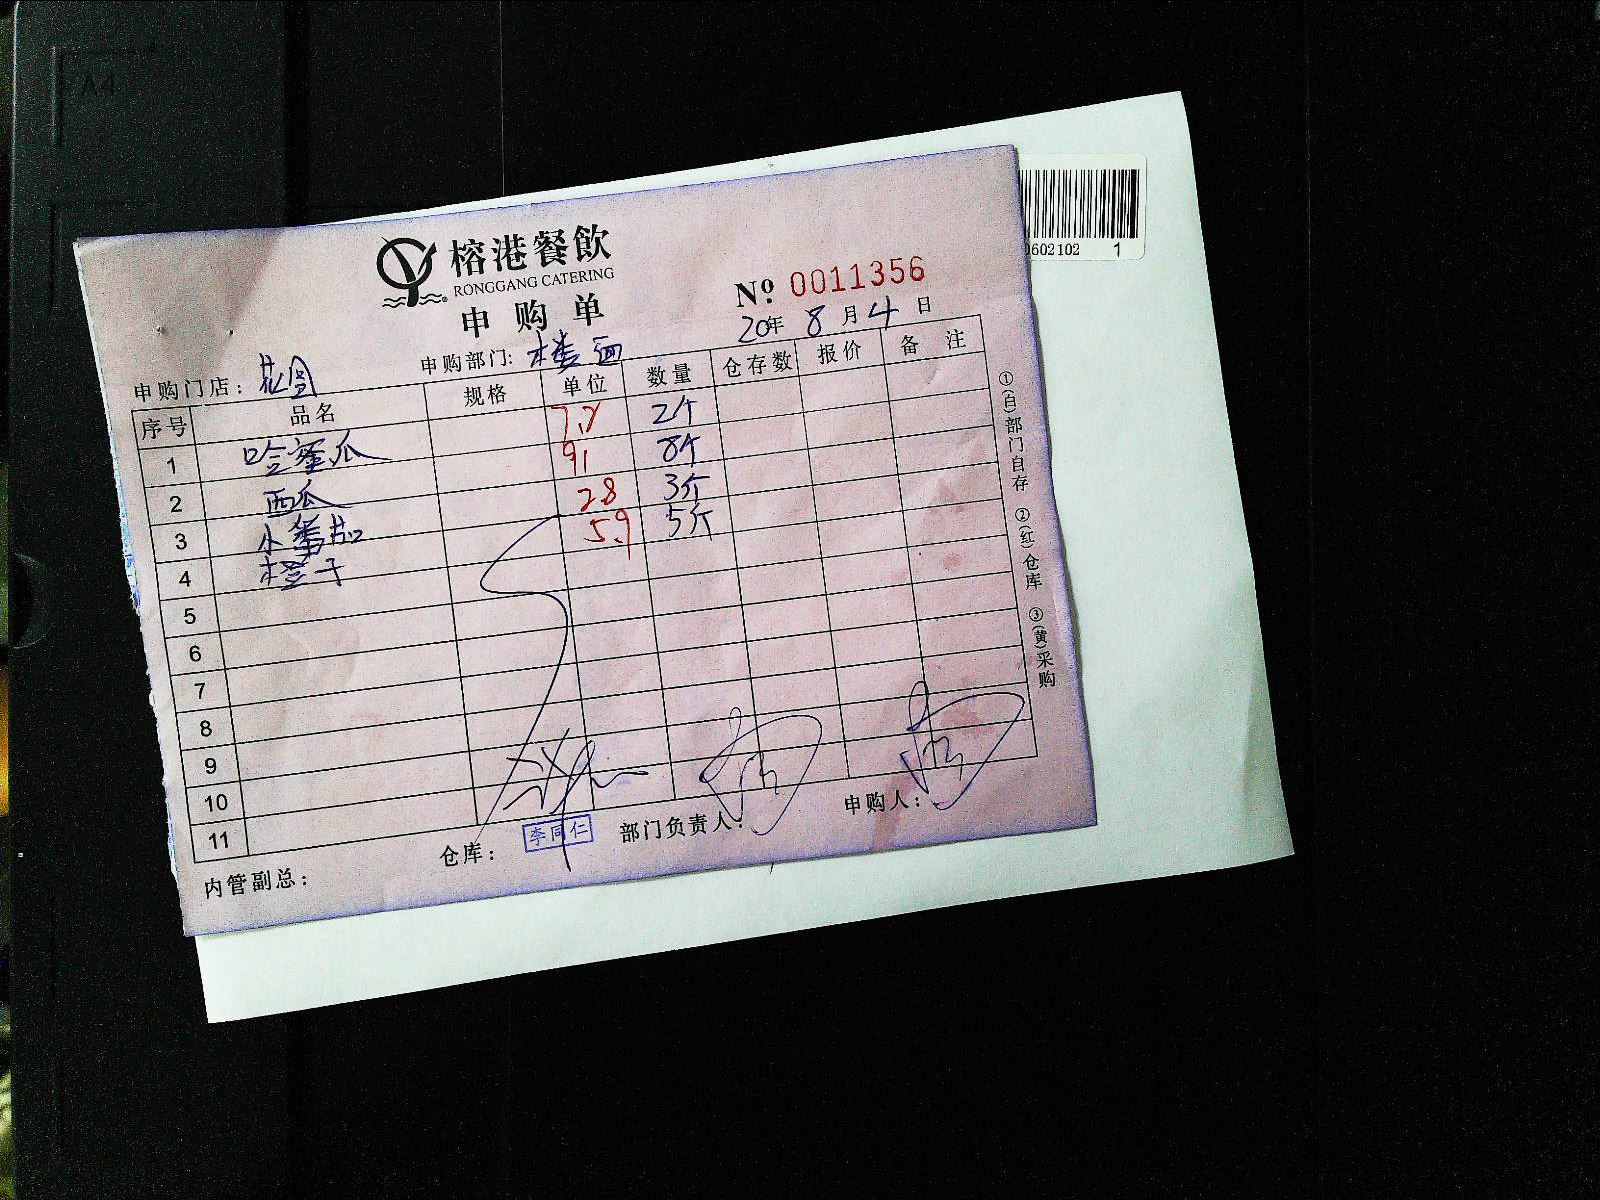 A4
602102 1
榕港餐飲
RONGGANG CATERING
申购单
№ 0011356
20年 8月 4日
申购门店： 花园 申购部门： 楼面
序号 品名 规格 单位 数量 仓存数 报价 备注
1 哈蜜瓜 7.2 2个
2 西瓜 91 8个
3 小番茄 2.8 3斤
4 橙子 5.9 5斤
5
6
7
8
9
10
11
内管副总： 仓库： 李同仁 部门负责人： 申购人：
①(白)部门自存 ②(红)仓库 ③(黄)采购